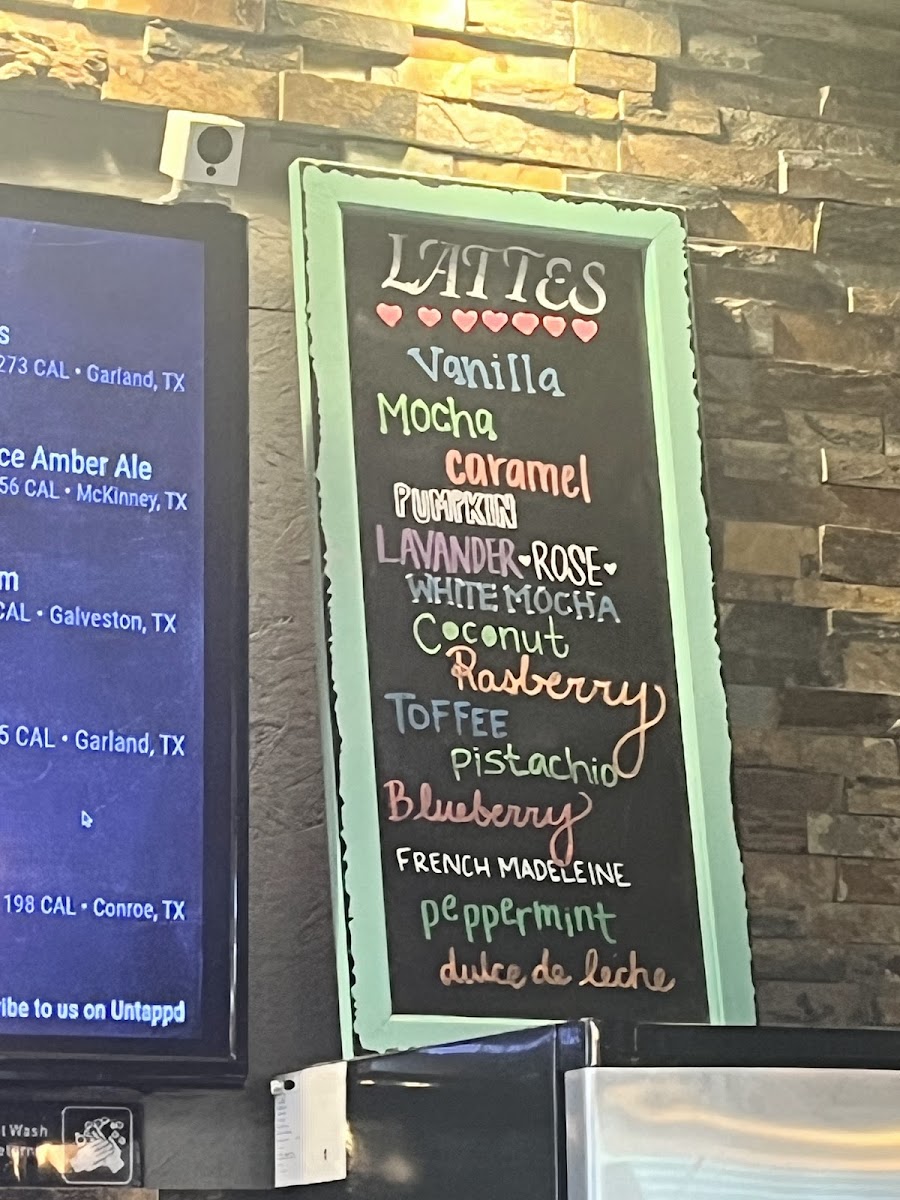 s
273 CAL • Garland, TX
ce Amber Ale
56 CAL • McKinney, TX
m
CAL • Galveston, TX
5 CAL • Garland, TX
198 CAL • Conroe, TX
ribe to us on Untappd
t Wash
LATTES
Vanilla
Mocha
caramel
PUMPKIN
LAVANDER ROSE
WHITE MOCHA
Coconut
Rasberry
TOFFEE
pistachio
Blueberry
FRENCH MADELEINE
peppermint
dulce de leche